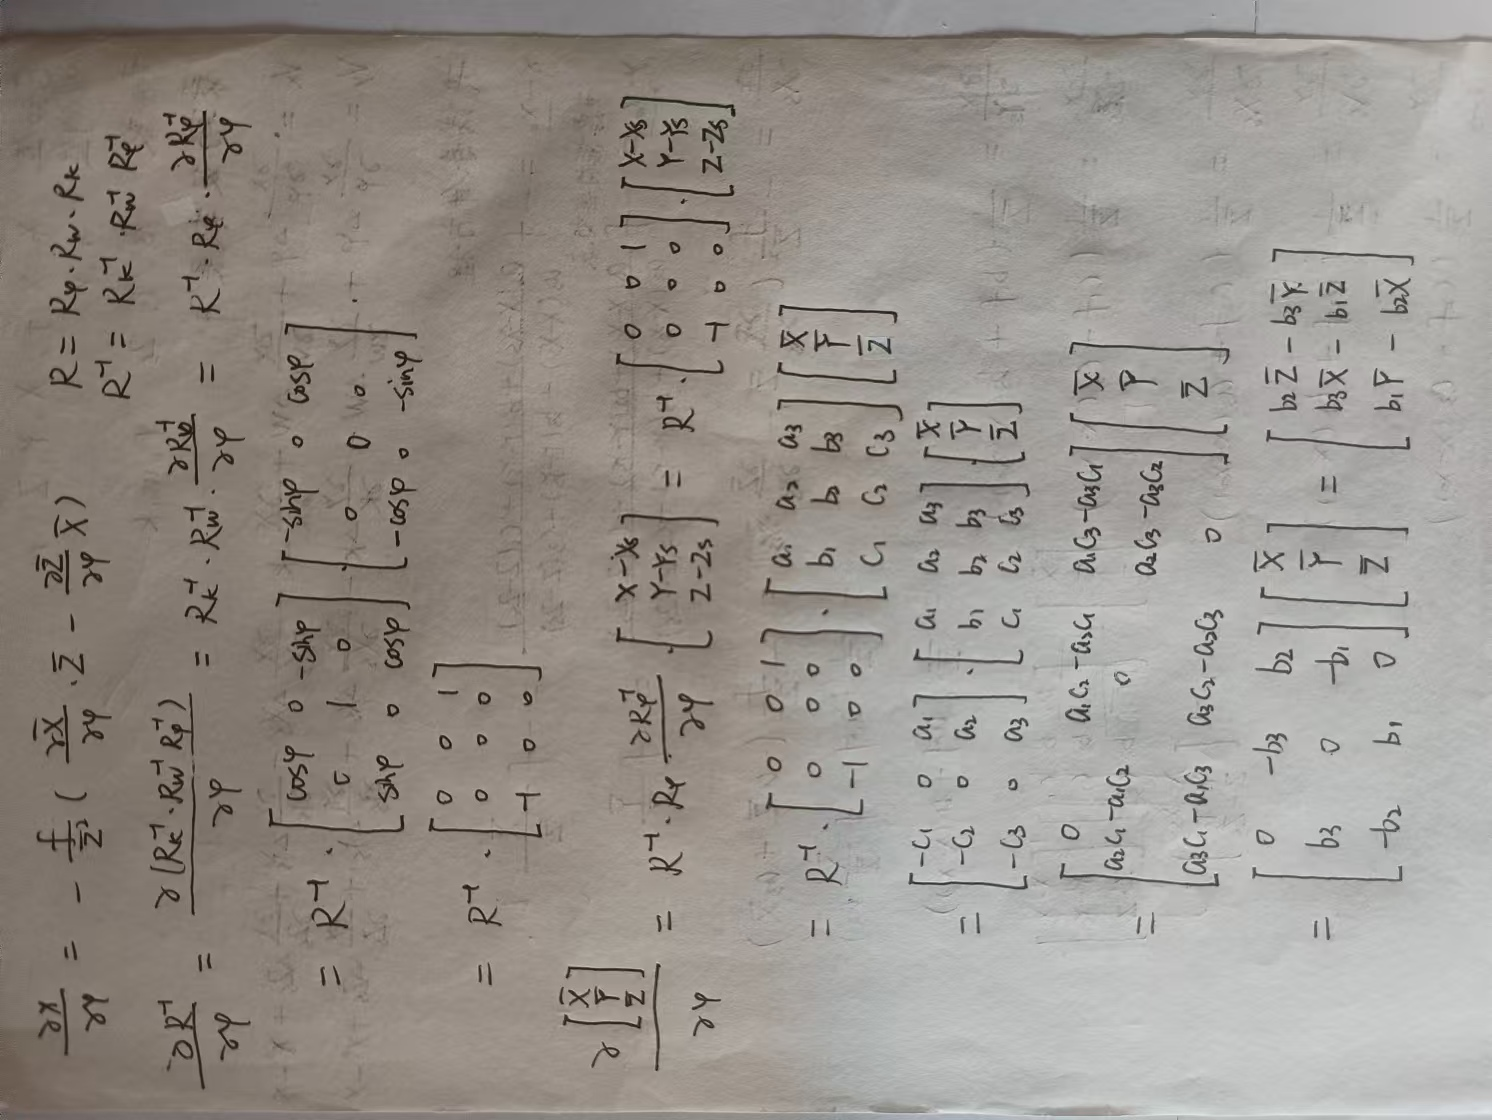 ∂x/∂φ = - f/Z̄² ( ∂X̄/∂φ · Z̄ - ∂Z̄/∂φ X̄ )
R = Rφ · Rω · Rκ
R⁻¹ = Rκ⁻¹ · Rω⁻¹ Rφ⁻¹
∂R⁻¹/∂φ = ∂(Rκ⁻¹ · Rω⁻¹ Rφ⁻¹)/∂φ = Rκ⁻¹ · Rω⁻¹ · ∂Rφ⁻¹/∂φ = R⁻¹ · Rφ · ∂Rφ⁻¹/∂φ
= R⁻¹ · [cosφ 0 -sinφ; 0 1 0; sinφ 0 cosφ] · [-sinφ 0 cosφ; 0 0 0; -cosφ 0 -sinφ]
= R⁻¹ · [0 0 1; 0 0 0; -1 0 0]
∂[X̄; Ȳ; Z̄]/∂φ = R⁻¹ · Rφ · ∂Rφ⁻¹/∂φ · [X-Xs; Y-Ys; Z-Zs] = R⁻¹ · [0 0 1; 0 0 0; -1 0 0] · [X-Xs; Y-Ys; Z-Zs]
= R⁻¹ · [0 0 1; 0 0 0; -1 0 0] · [a1 a2 a3; b1 b2 b3; c1 c2 c3] [X̄; Ȳ; Z̄]
= [-c1 0 a1; -c2 0 a2; -c3 0 a3] · [a1 a2 a3; b1 b2 b3; c1 c2 c3] [X̄; Ȳ; Z̄]
= [0 a1c2-a2c1 a1c3-a3c1; a2c1-a1c2 0 a2c3-a3c2; a3c1-a1c3 a3c2-a2c3 0] [X̄; Ȳ; Z̄]
= [0 -b3 b2; b3 0 -b1; -b2 b1 0] [X̄; Ȳ; Z̄] = [b2Z̄ - b3Ȳ; b3X̄ - b1Z̄; b1Ȳ - b2X̄]